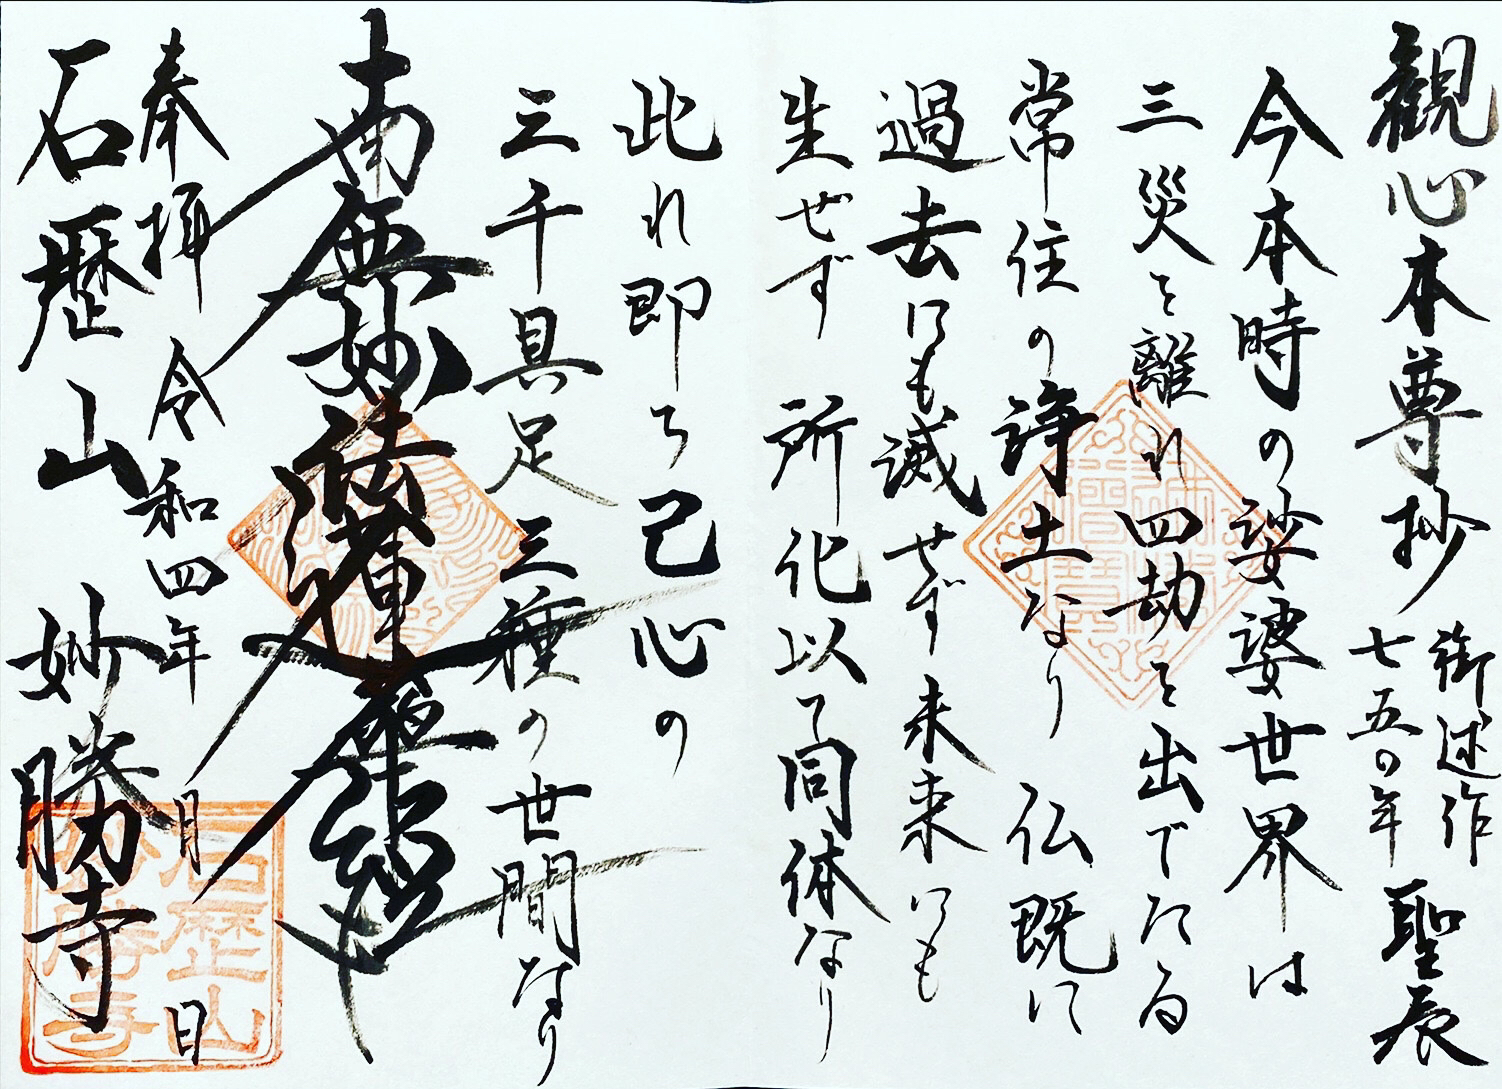 観心本尊抄
御述作
七五〇年
聖辰
今本時の娑婆世界は
三災を離れ四劫を出でたる
常住の浄土なり 仏既に
過去にも滅せず未来にも
生ぜず 所化以て同体なり
此れ即ち己心の
三千具足 三種の世間なり
南無妙法蓮華経
奉拝 令和四年 月 日
石歴山 妙勝寺
石歴山
妙勝寺